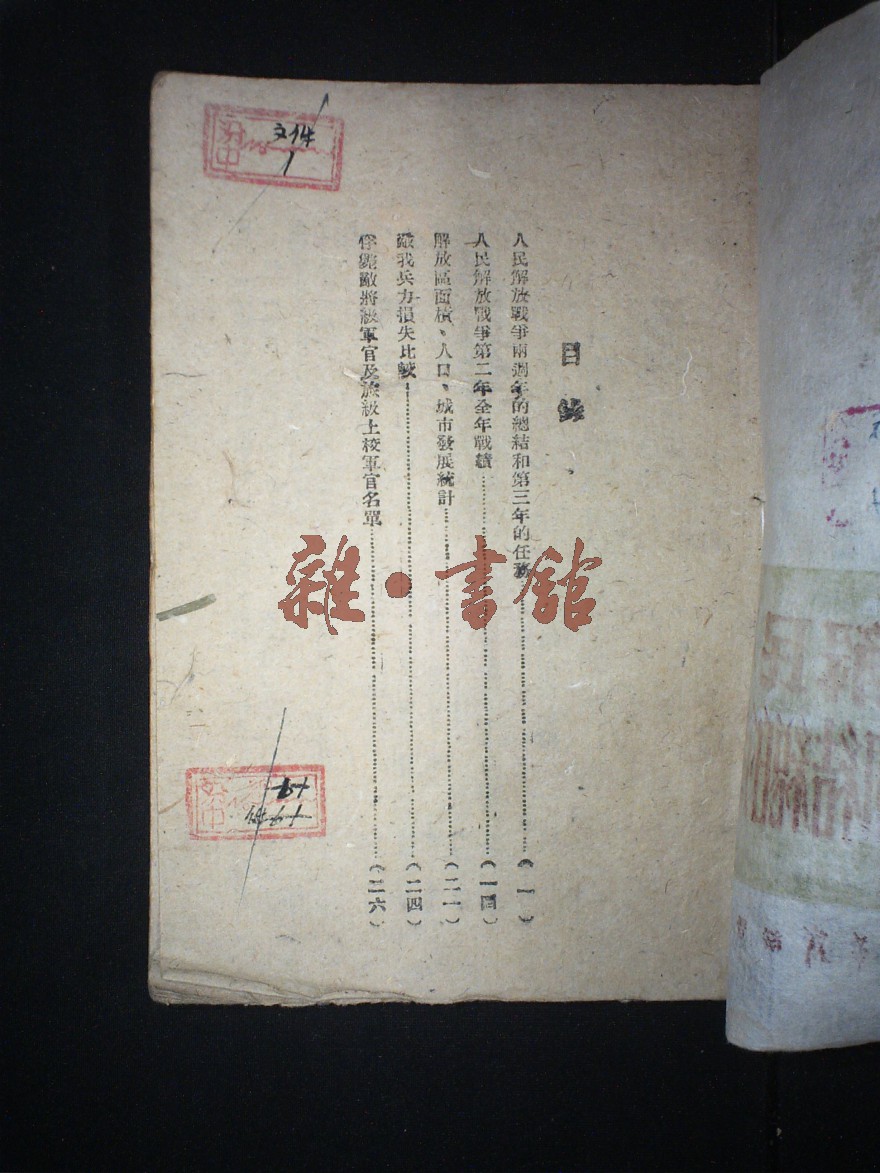 目錄
人民解放戰爭兩週年的總結和第三年的任務……(一)
人民解放戰爭第二年全年戰績……(一四)
解放區面積、人口、城市發展統計……(二一)
敵我兵力損失比較……(二四)
俘斃敵將級軍官及旅級上校軍官名單……(二六)
文件
1
雜·書館